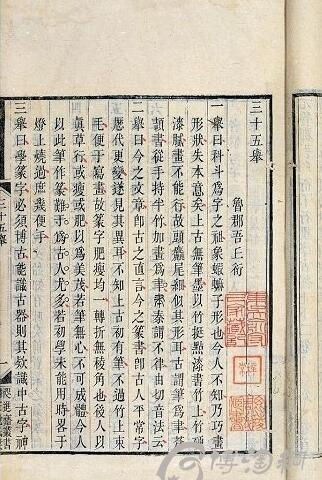 三十五舉
魯郡吾丘衍
一舉曰科斗爲字之祖象蝦蟆子形也今人不知乃巧畫
形狀失本意矣上古無筆墨以竹挺點漆書竹上竹硬
漆膩畫不能行故頭麤尾細似其形耳古謂筆爲聿蒼
頡書從手持半竹加畫爲聿秦謂不律由切音法云
二舉曰今之文章即古之直言今之篆書即古人平常字
歷代更變遂見其異耳不知上古初有筆不過竹上束
毛便于寫畫故篆字肥瘦均一轉折無稜角也後人以
眞草行或瘦或肥以爲美茂若筆無心不可成體今人
以此筆作篆難于爲古人尤多若初學未能用時畧于
燈上燒過庶幾便手
三舉曰學篆字必須博古能識古器則其款識中古字神
三十五舉
一
咫進齋叢書